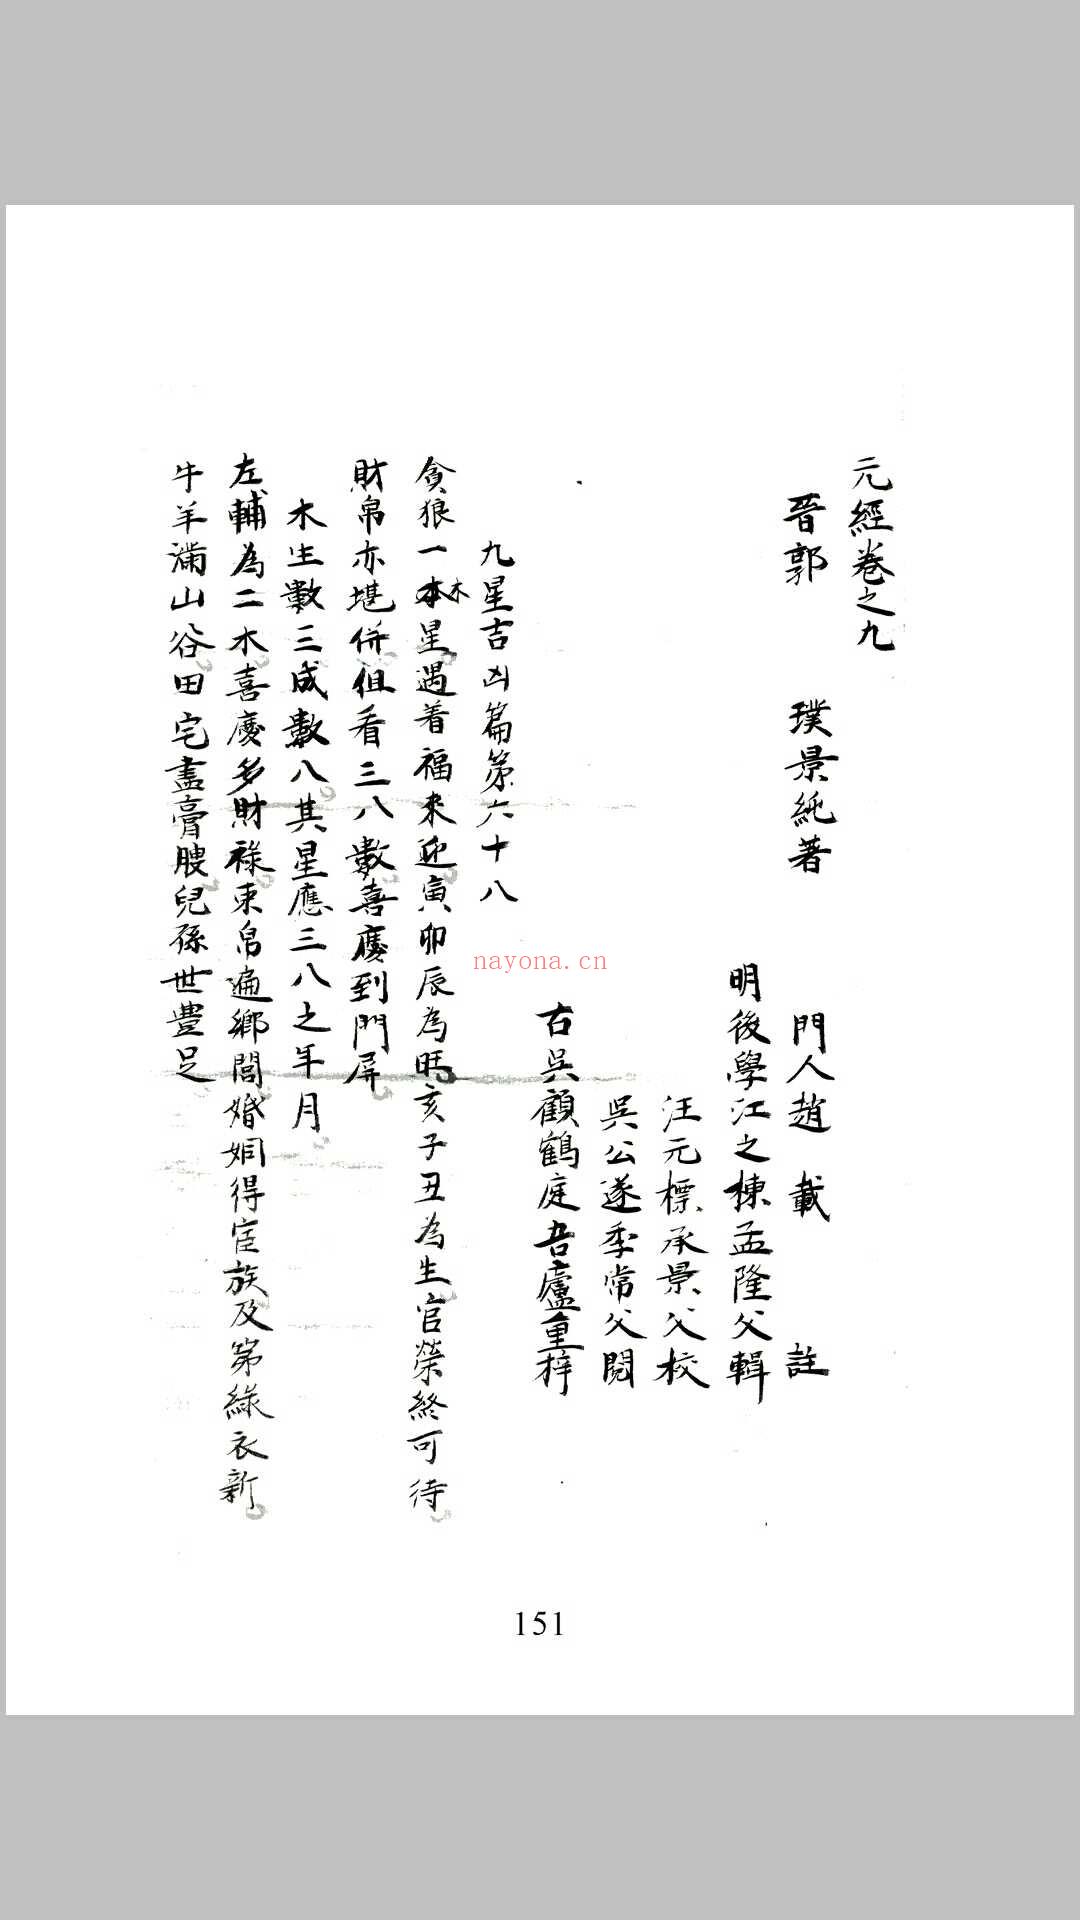 元經卷之九
晉郭 璞景純著 門人趙 載 註
明後學江之棟孟隆父輯
汪元標承景父校
吳公遂季常父閱
古吳顧鶴庭吾廬重梓
九星吉凶篇第六十八
貪狼一本木星遇着福來迎寅卯辰為旺亥子丑為生官榮終可待
財帛亦堪併但看三八數喜慶到門屏
木生數三成數八其星應三八之年月
左輔為二木喜慶多財祿束帛遍鄉閭婚姻得宦族及第綠衣新
牛羊滿山谷田宅盡膏腴兒孫世豊足
nayona.cn
151